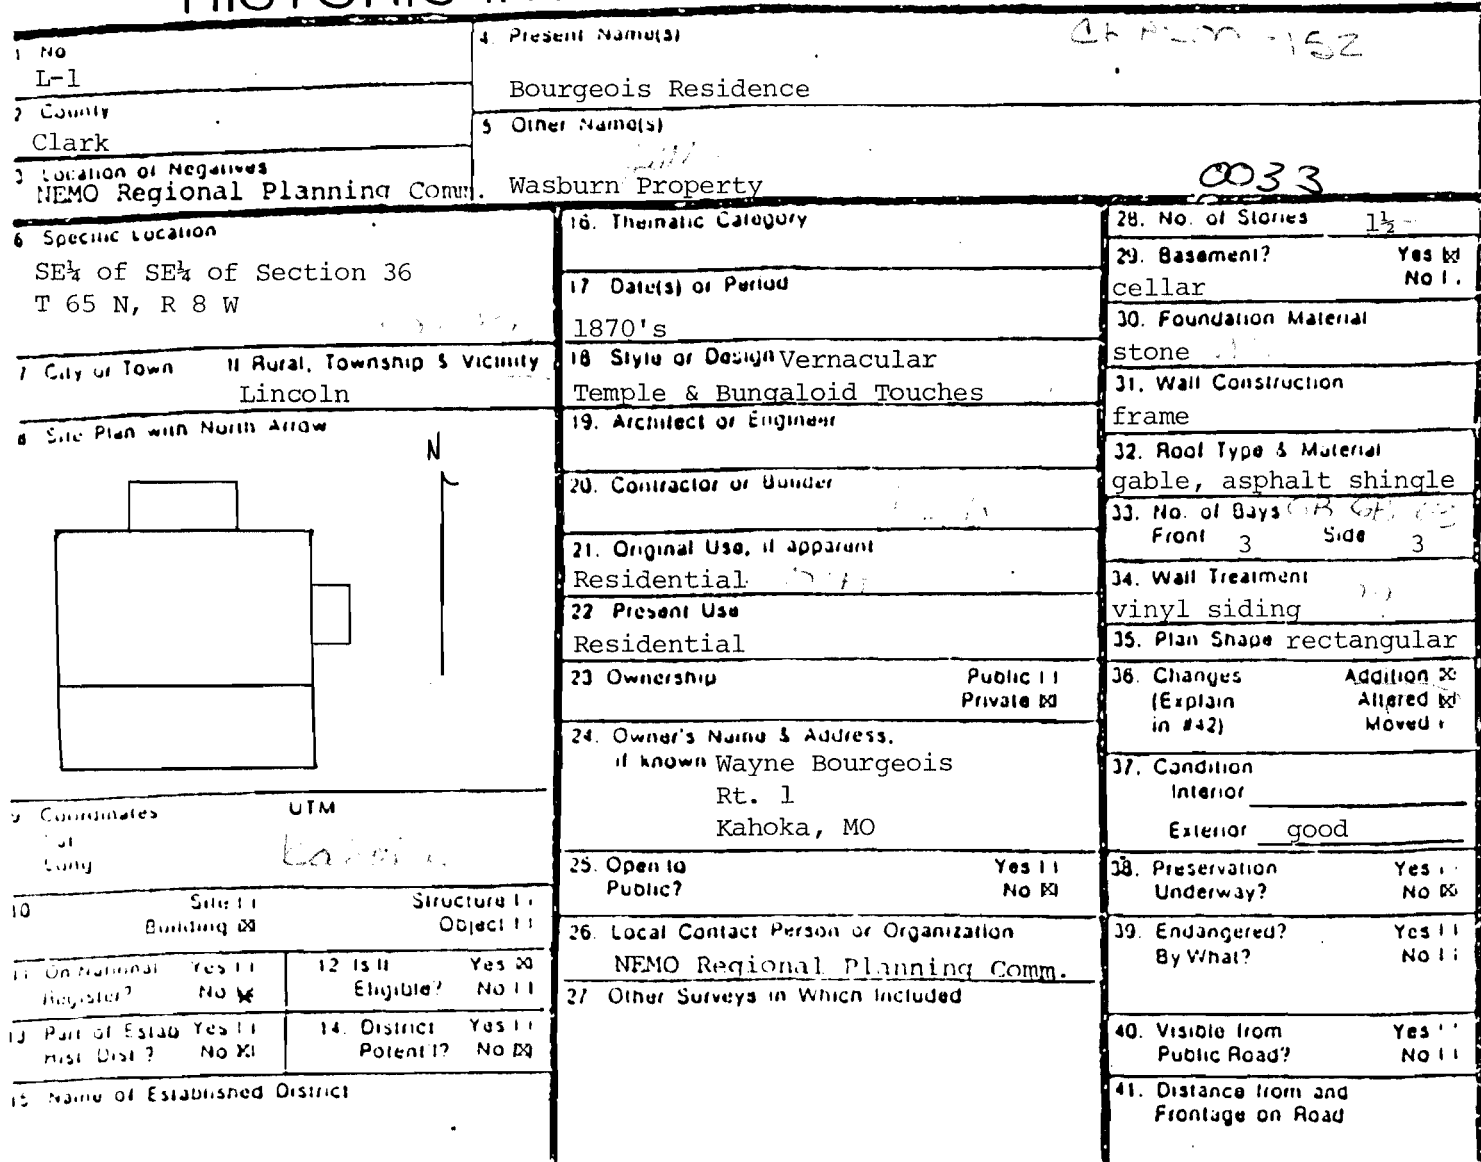 1 No
L-1
2 County
Clark
3 Location of Negatives
NEMO Regional Planning Comm.
4. Present Name(s)
152
Bourgeois Residence
5 Other Name(s)
Wasburn Property
0033
6 Specific Location
SE¼ of SE¼ of Section 36
T 65 N, R 8 W
7 City or Town If Rural, Township & Vicinity
Lincoln
8 Site Plan with North Arrow
N
9 Coordinates UTM
Lat
Long
10 Site Structure
Building Object
11 On National Yes
Register? No
12 Is It Yes
Eligible? No
13 Part of Estab Yes
Hist. Dist.? No
14. District Yes
Potent'l? No
15 Name of Established District
16. Thematic Category
17 Date(s) or Period
1870's
18 Style or Design Vernacular
Temple & Bungaloid Touches
19. Architect or Engineer
20. Contractor or Builder
21. Original Use, if apparent
Residential
22 Present Use
Residential
23 Ownership Public
Private
24. Owner's Name & Address,
if known Wayne Bourgeois
Rt. 1
Kahoka, MO
25. Open to Yes
Public? No
26. Local Contact Person or Organization
NEMO Regional Planning Comm.
27 Other Surveys in Which Included
28. No. of Stories 1½
29. Basement? Yes
cellar No
30. Foundation Material
stone
31. Wall Construction
frame
32. Roof Type & Material
gable, asphalt shingle
33. No. of Bays
Front 3 Side 3
34. Wall Treatment
vinyl siding
35. Plan Shape rectangular
36. Changes Addition
(Explain Altered
in #42) Moved
37. Condition
Interior
Exterior good
38. Preservation Yes
Underway? No
39. Endangered? Yes
By What? No
40. Visible from Yes
Public Road? No
41. Distance from and
Frontage on Road